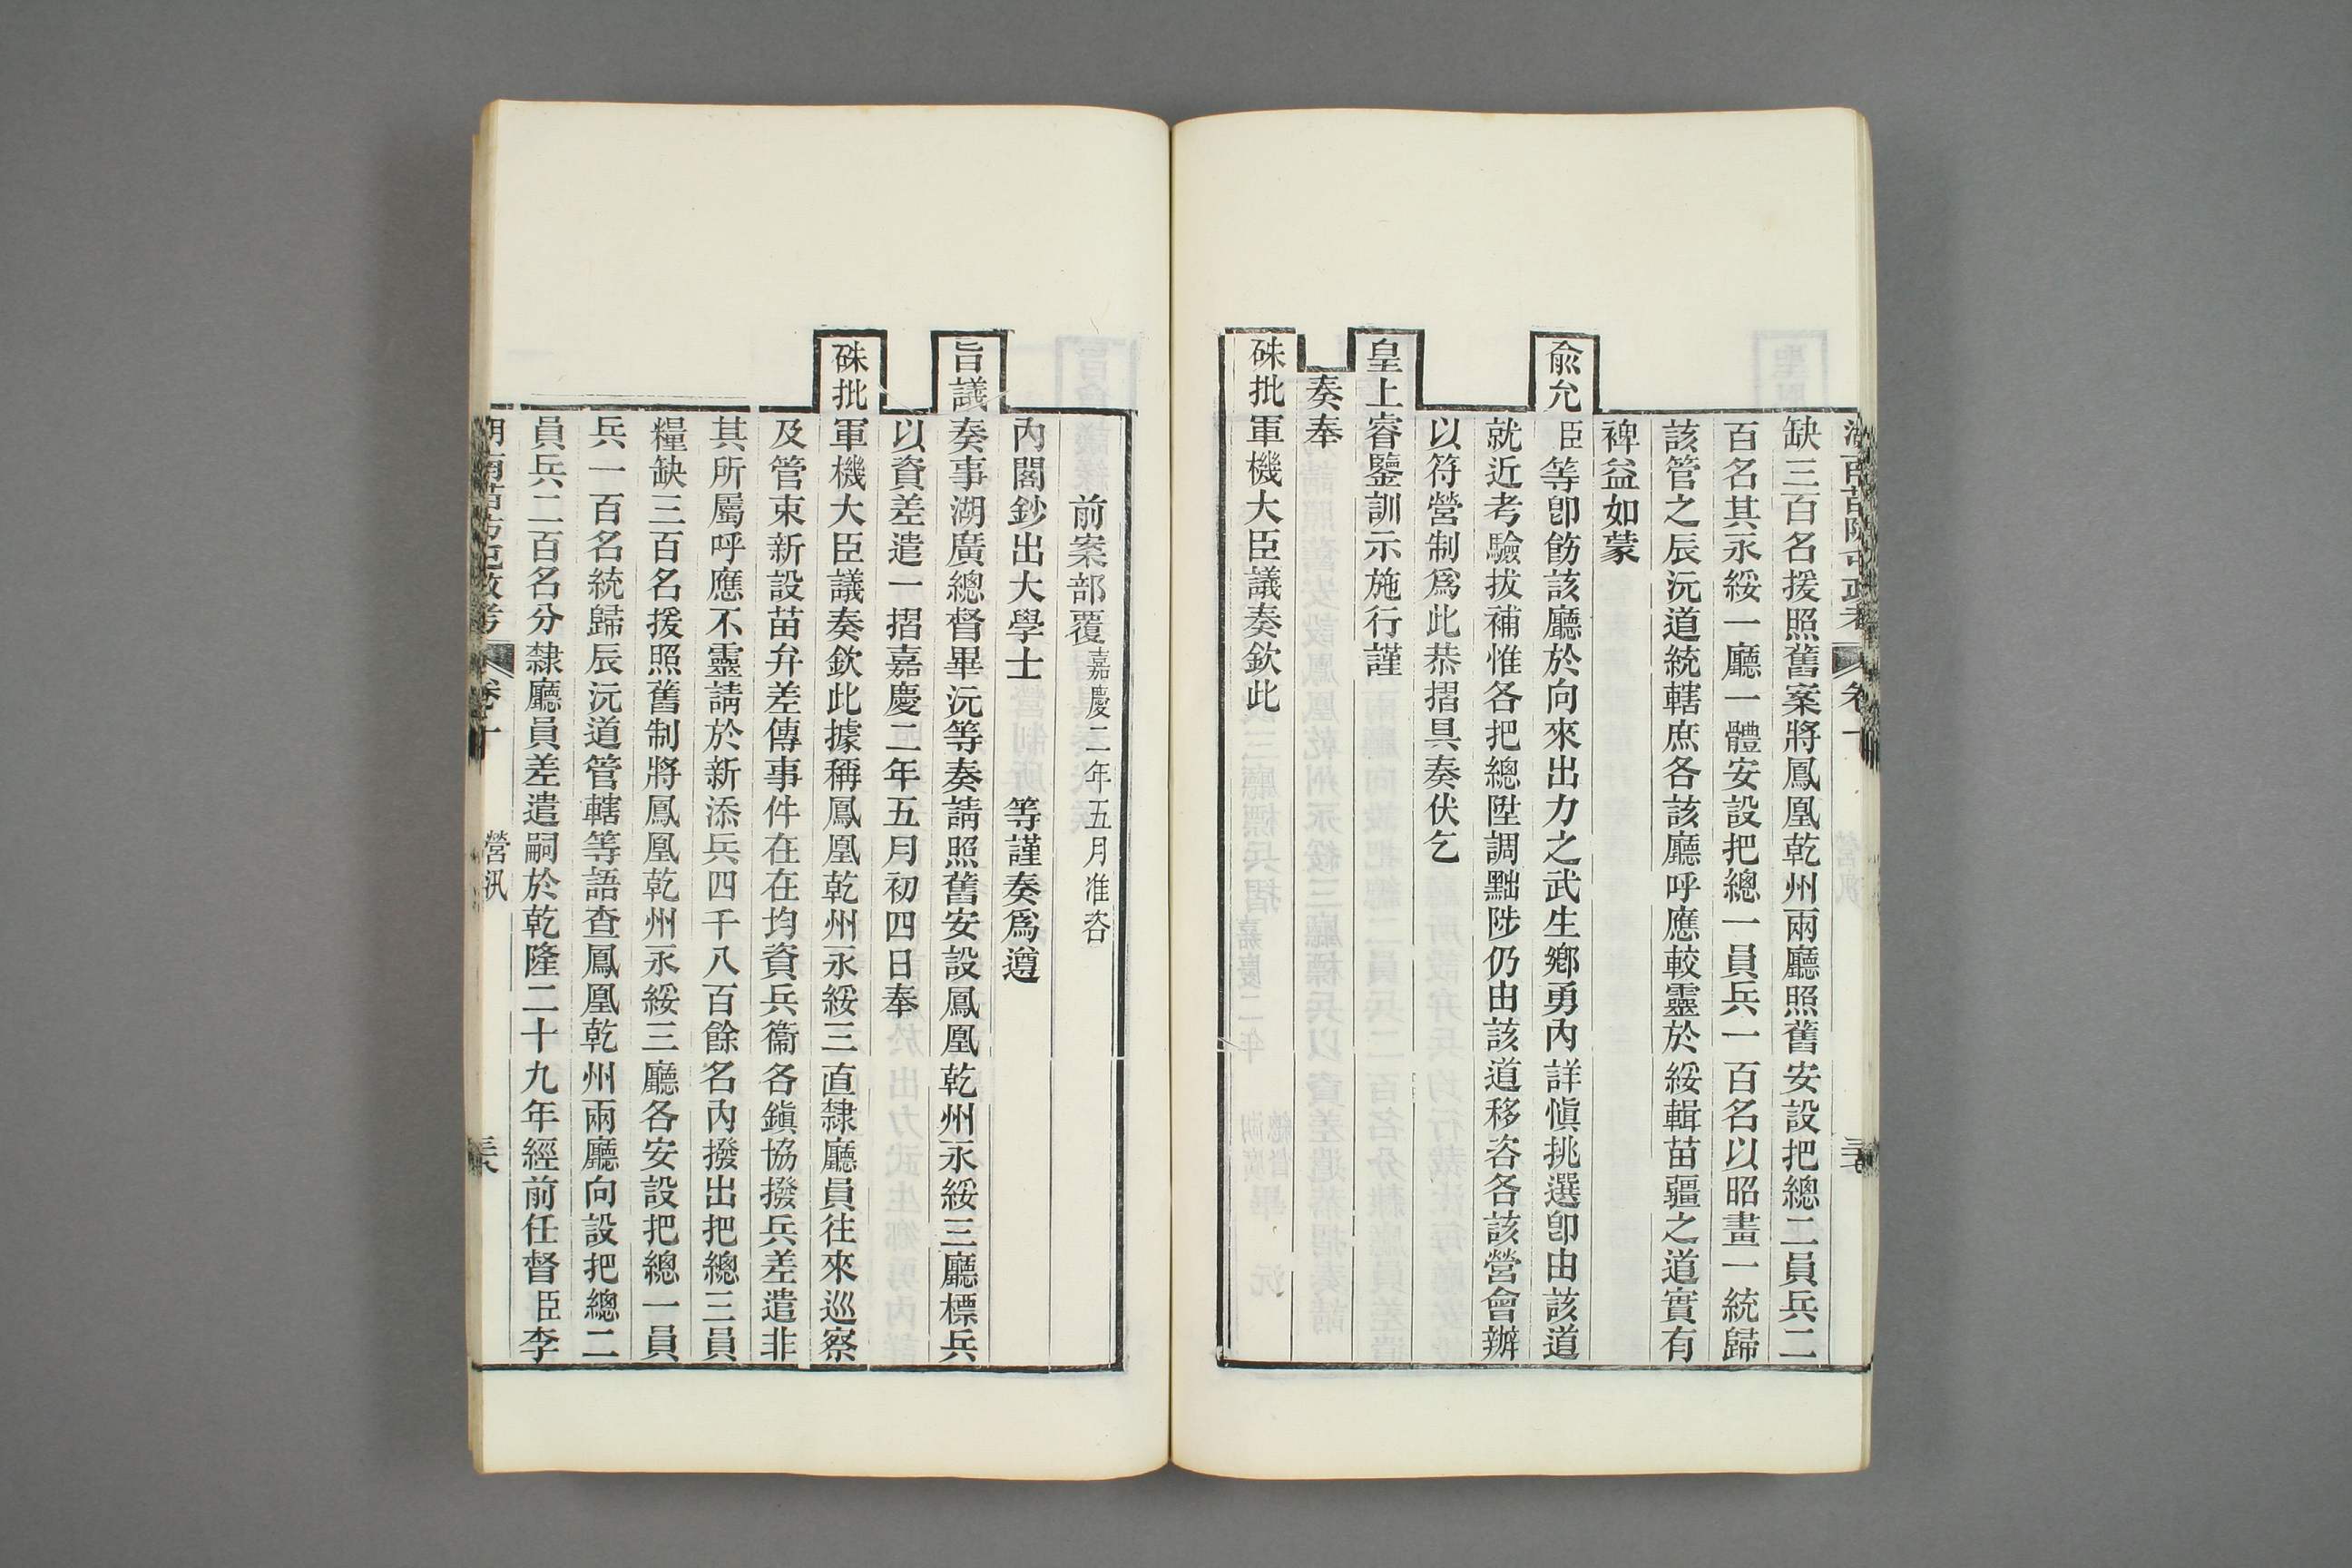 缺三百名援照舊案將鳳凰乾州兩廳照舊安設把總二員兵二
百名其永綏一廳一體安設把總一員兵一百名以昭畫一統歸
該管之辰沅道統轄庶各該廳呼應較靈於綏輯苗疆之道實有
裨益如蒙
俞允臣等卽飭該廳於向來出力之武生鄉勇內詳愼挑選卽由該道
就近考驗拔補惟各把總陞調黜陟仍由該道移咨各該營會辦
以符營制爲此恭摺具奏伏乞
皇上睿鑒訓示施行謹
奏奉
硃批軍機大臣議奏欽此
前案部覆嘉慶二年五月准咨
內閣鈔出大學士　　　等謹奏爲遵
旨議奏事湖廣總督畢沅等奏請照舊安設鳳凰乾州永綏三廳標兵
以資差遣一摺嘉慶二年五月初四日奉
硃批軍機大臣議奏欽此據稱鳳凰乾州永綏三直隸廳員往來巡察
及管束新設苗弁差傳事件在在均資兵衞各鎭協撥兵差遣非
其所屬呼應不靈請於新添兵四千八百餘名內撥出把總三員
糧缺三百名援照舊制將鳳凰乾州永綏三廳各安設把總一員
兵一百名統歸辰沅道管轄等語查鳳凰乾州兩廳向設把總二
員兵二百名分隸廳員差遣嗣於乾隆二十九年經前任督臣李
卷十
營汛